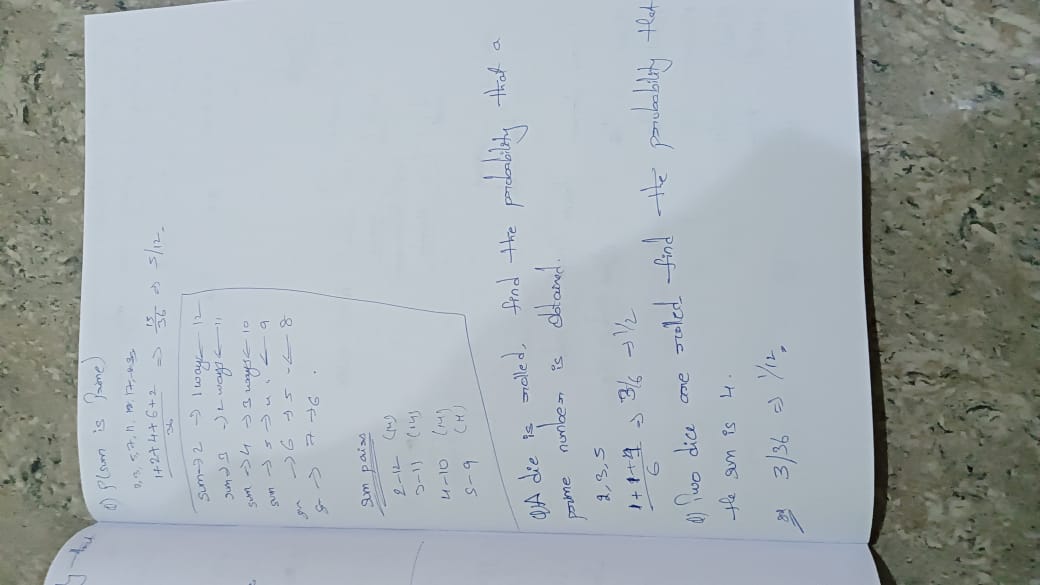 Q) P(sum is Prime)
2, 3, 5, 7, 11, 13, 17,
1+2+4+6+2 / 36 => 15/36 => 5/12.
sum → 2 → 1 way ← 12
sum → 3 → 2 ways ← 11
sum → 4 → 3 ways ← 10
sum → 5 → 4 . ← 9
→ 6 → 5 . ← 8
→ 7 → 6 .
sum pairs
2 - 12 (14)
3 - 11 (14)
4 - 10 (14)
5 - 9 (14)
Q) A die is rolled, find the probability that a
prime number is obtained.
2, 3, 5
6 => 3/6 → 1/2
Q) Two dice are rolled find the probability that
the sum is 4.
3/36 => 1/12.